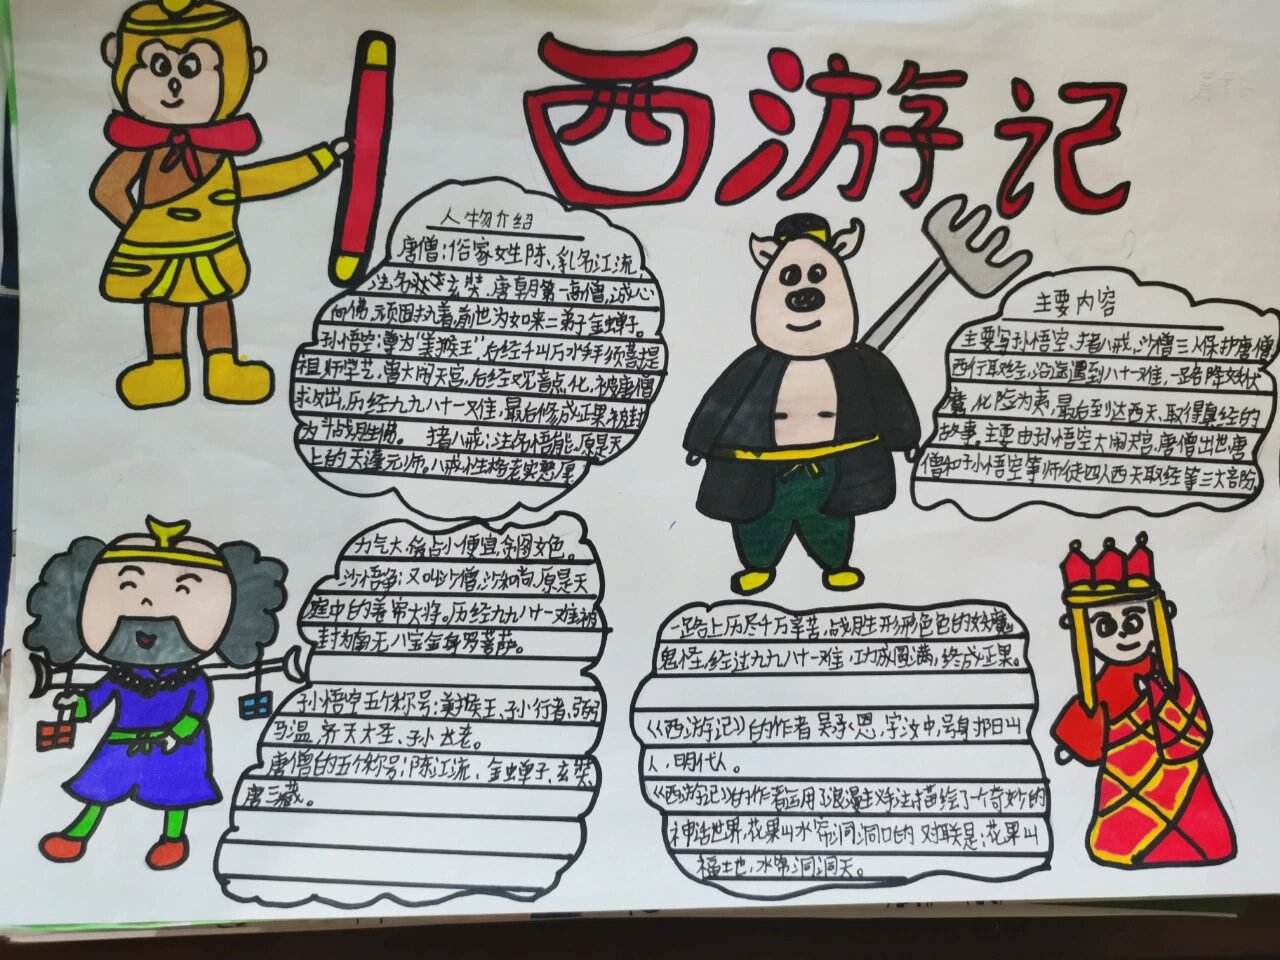 西游记
人物介绍
唐僧:俗家姓陈,乳名江流,
法名玄奘,唐朝第一高僧,诚心
向佛,顽固执着,前世为如来二弟子金蝉子。
孙悟空:尊为“美猴王”,后经千山万水拜须菩提
祖师学艺,曾大闹天宫,后经观音点化,被唐僧
救出,历经九九八十一难,最后修成正果,被封
为斗战胜佛。 猪八戒:法名悟能,原是天
上的天蓬元帅。八戒性格老实憨厚
力气大,贪占小便宜,贪图女色。
沙悟净:又叫沙僧,沙和尚,原是天
庭中的卷帘大将。历经九九八十一难,被
封为南无八宝金身罗菩萨。
孙悟空五个称号:美猴王、孙行者、弼
马温、齐天大圣、孙大老。
唐僧的五个称号:陈江流、金蝉子、玄奘、
唐三藏。
主要内容
主要写孙悟空、猪八戒、沙僧三人保护唐僧
西行取经,沿途遇到八十一难,一路降妖伏
魔,化险为夷,最后到达西天、取得真经的
故事。主要由孙悟空大闹天宫、唐僧出世、唐
僧和孙悟空等师徒四人西天取经等三大部份
一路上历尽千万辛苦,战胜形形色色的妖魔
鬼怪,经过九九八十一难,功成圆满,终成正果。
《西游记》的作者吴承恩,字汝中,号身阳山
人,明代人。
《西游记》的作者运用了浪漫主义手法描绘了一个奇妙的
神话世界,花果山水帘洞洞口的对联是:花果山
福地,水帘洞洞天。